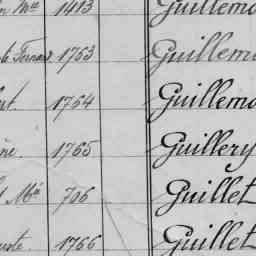 n Mie 1413 Guillemo
Fernand 1753 Guillem
1754 Guillemo
ne 1765 Guillery
Mie 706 Guillet
uste 1766 Guillet